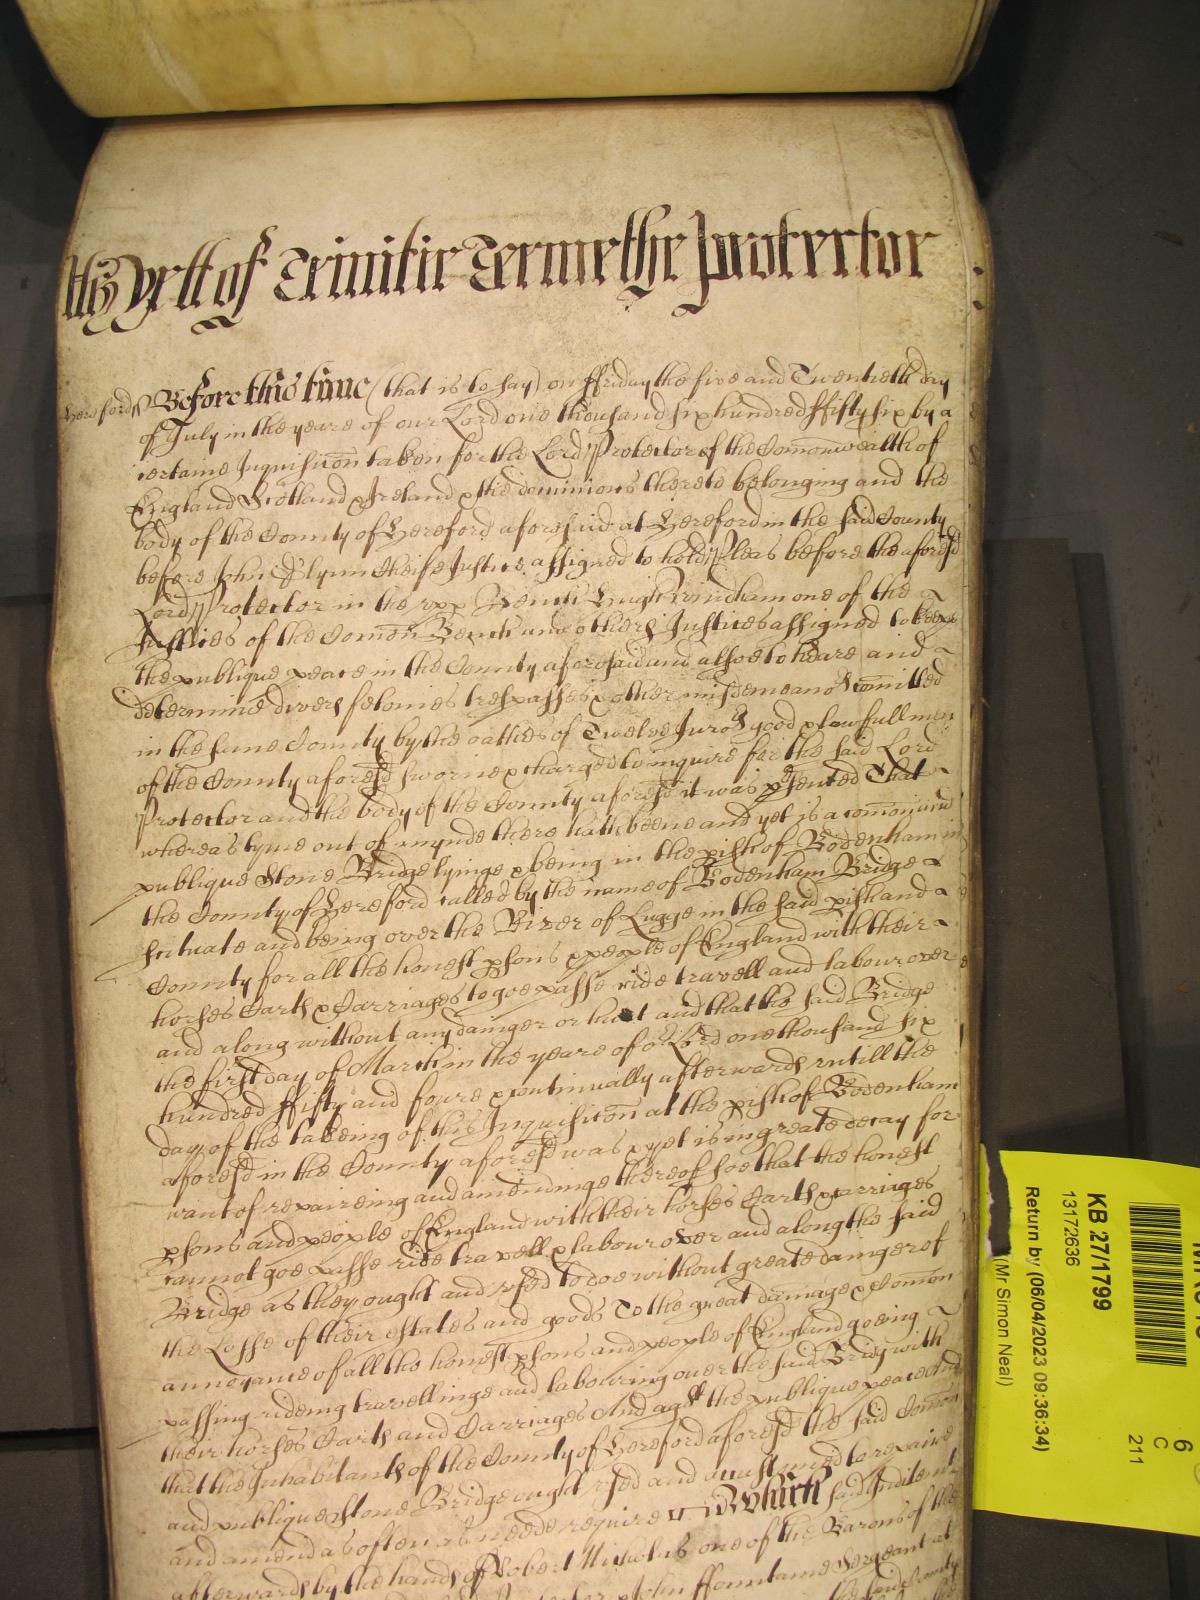 Yett of Trinitie Terme the Protector
Hereford Before this time (that is to say) on ffriday the five and Twentieth day
of July in the yeare of our Lord one thousand six hundred ffifty six by a
certaine Inquisicon taken for the Lord Protector of the Comonwealth of
England Scotland & Ireland & the dominions thereto belonging and the
body of the County of Hereford aforesaid at Hereford in the said County
before John Glynn Cheife Justice assigned to hold Pleas before the aforesd
Lord Protector in the Bench Hugh Windham one of the
Justices of the Comon Bench and others Justices assigned to keepe
the publique peace in the County aforesaid and alsoe to heare and
determine divers felonies trespasses & other misdemeanors comitted
in the same County by the oathes of Twelve Jurors good & lawfull men
of the County aforesd sworne & charged to inquire for the said Lord
Protector and the body of the County aforesd it was psented That
whereas tyme out of mynde there hath beene and yet is a comon and
publique Stone Bridge lyinge & being in the pish of Bodenham in
the County of Hereford called by the name of Bodenham Bridge
scituate and being over the River of Lugge in the said pish and
County for all the honest psons & people of England with their
horses Carts & Carriages to goe passe ride travell and labour over
and along without any dainger or hurt and that the said Bridge
the first day of March in the yeare of or Lord one thousand six
hundred ffifty and foure & continually afterwards untill the
day of the takeing of this Inquisicon at the pish of Bodenham
aforesd in the County aforesd was & yet is in greate decay for
want of repaireing and amendinge thereof soe that the honest
psons and people of England with their horses Carts & carriages
cannot goe passe ride travell & labour over and along the said
Bridge as they ought and used to doe without great dainger of
the Losse of their estates and goods To the great damage & Comon
annoyance of all the honest psons and people of England goeing
passing rideing travellinge and labouring over the said Bridg with
their horses Carts and Carriages And agt the publique peace And
that the Inhabitants of the County of Hereford aforesd the said Comon
and publique Stone Bridge ought used and accustomed to repaire
and amend as often as neede require Which said Inditemt
afterwards by the hands of Robert Nicholas one of the Barons of the
John ffountaine Sergeant at
the said County
KB 27/1799
13172636
Return by (06/04/2023 09:36:34)
(Mr Simon Neal)
6
C
211